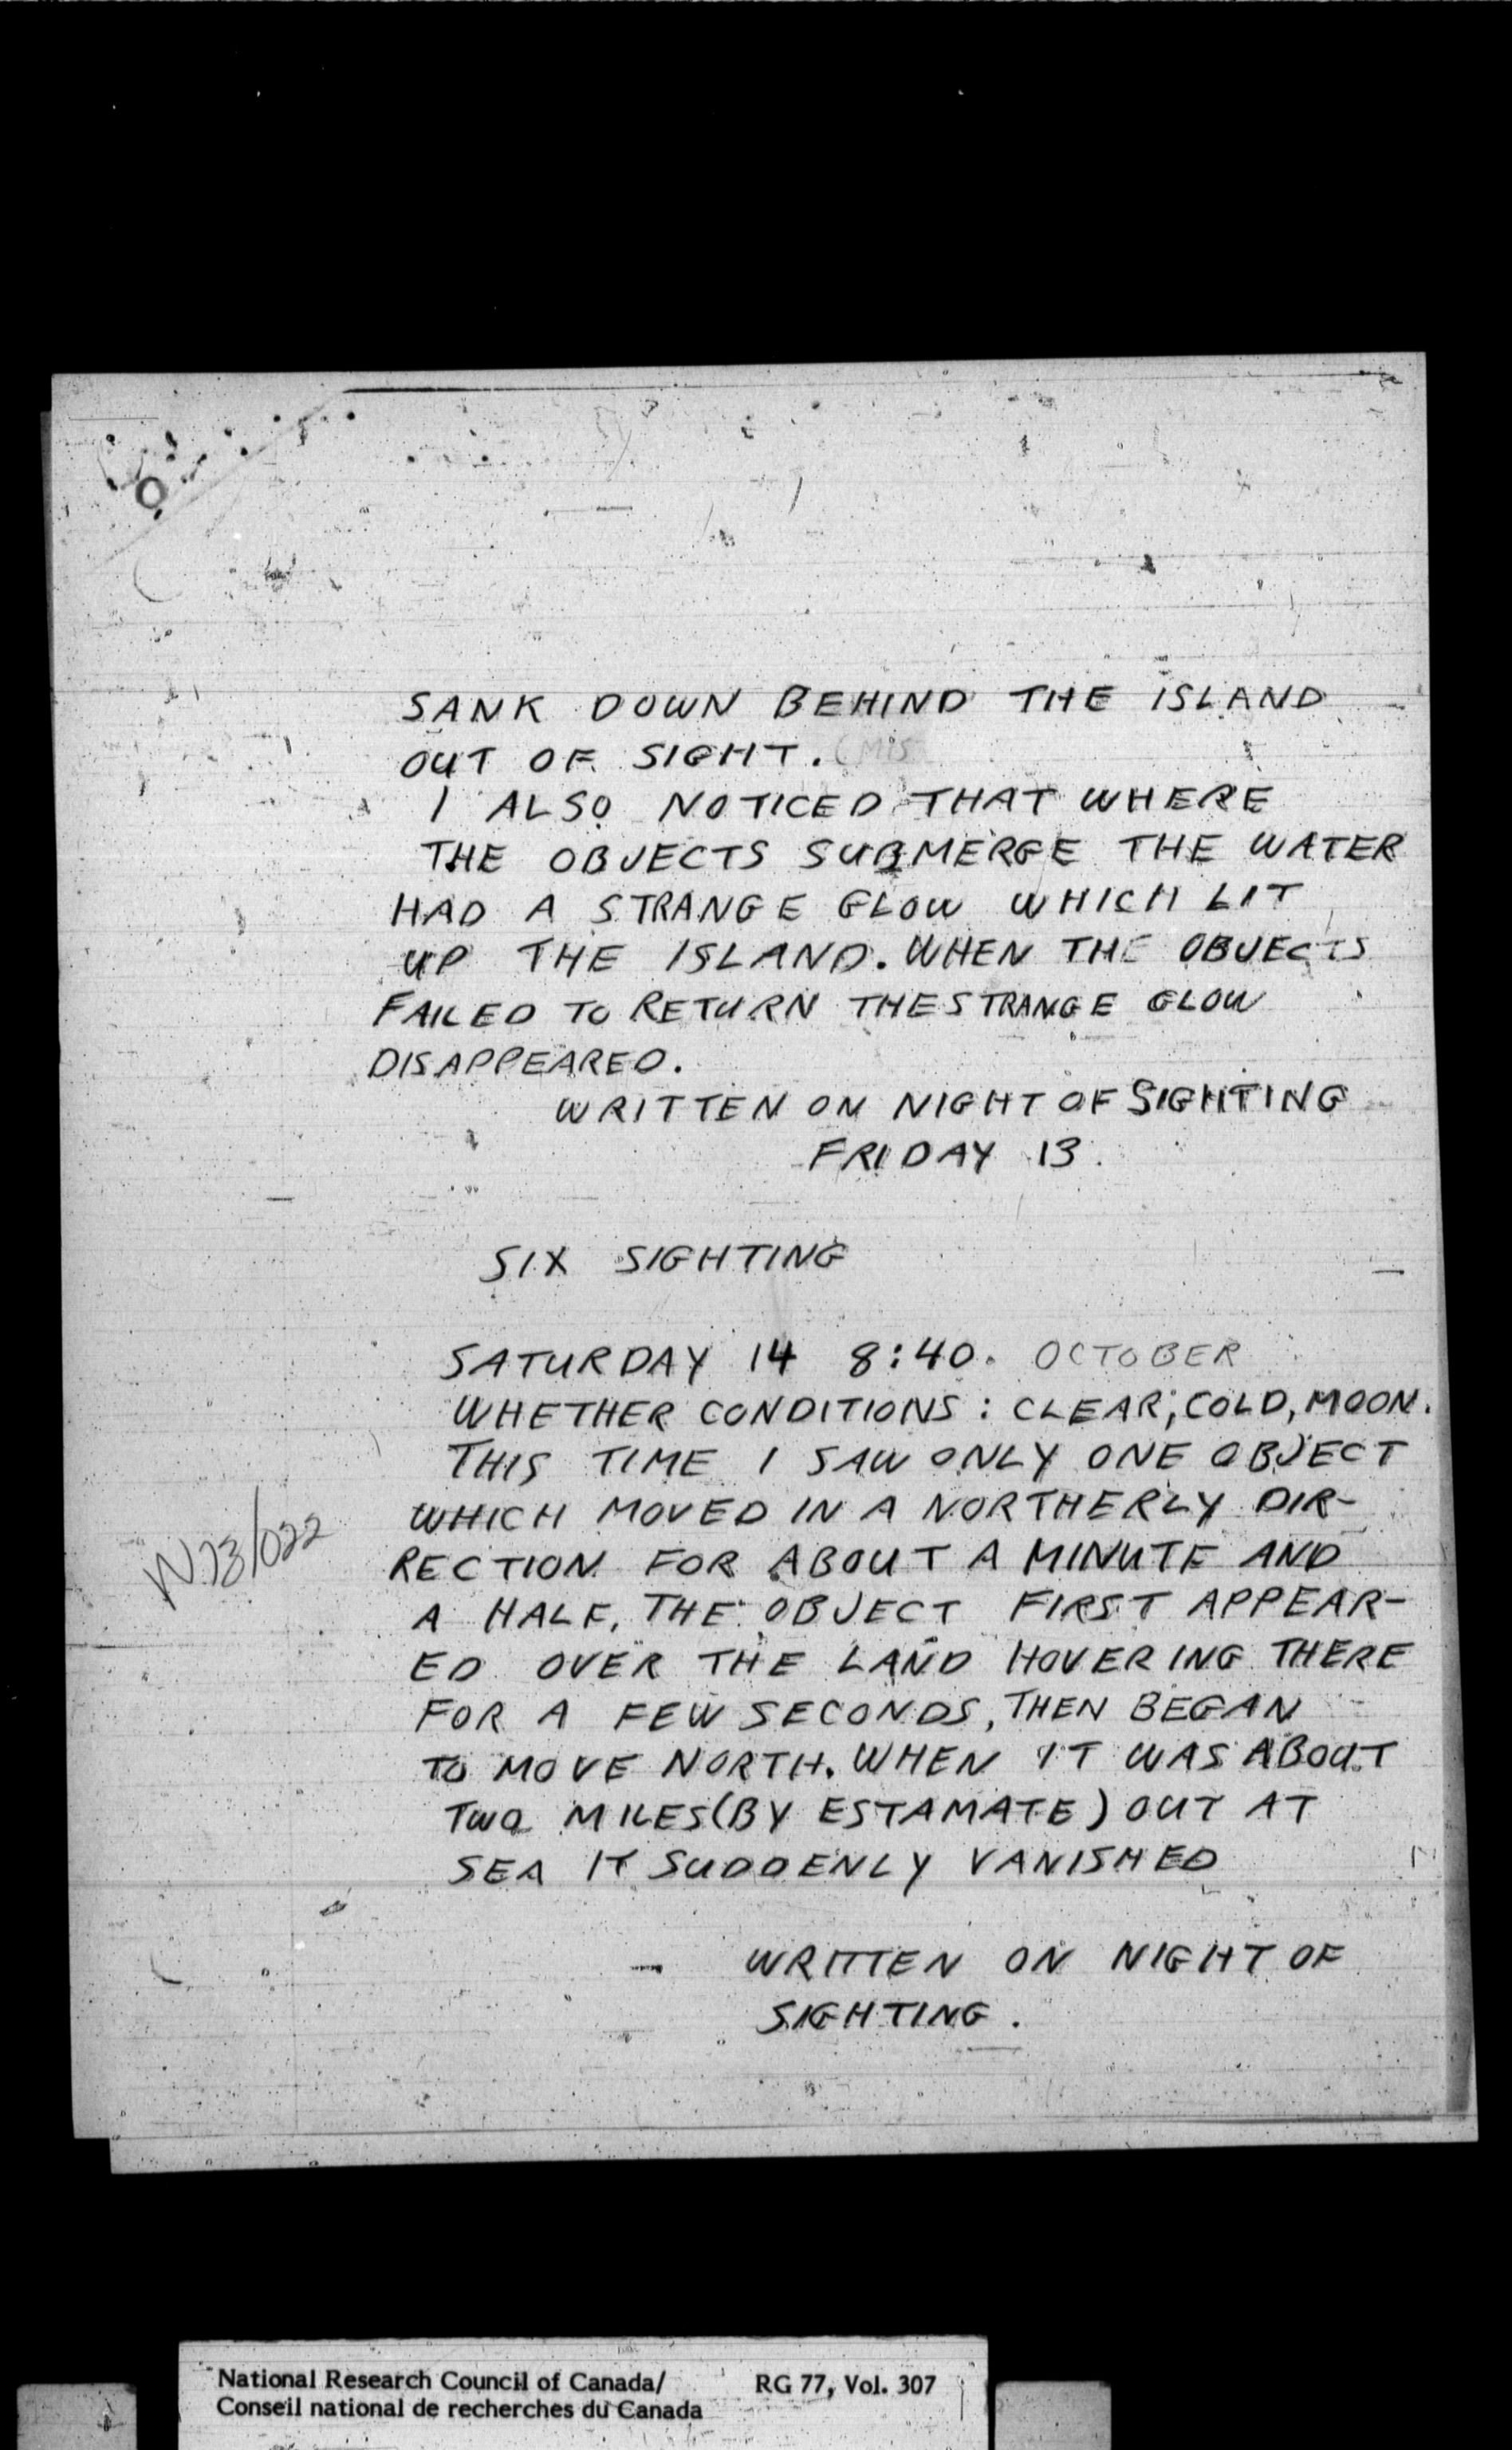 SANK DOWN BEHIND THE ISLAND
OUT OF SIGHT.
I ALSO NOTICED THAT WHERE
THE OBJECTS SUBMERGE THE WATER
HAD A STRANGE GLOW WHICH LIT
UP THE ISLAND. WHEN THE OBJECTS
FAILED TO RETURN THE STRANGE GLOW
DISAPPEARED.
WRITTEN ON NIGHT OF SIGHTING
FRIDAY 13.
SIX SIGHTING
SATURDAY 14 8:40. OCTOBER
WHETHER CONDITIONS: CLEAR, COLD, MOON.
THIS TIME I SAW ONLY ONE OBJECT
WHICH MOVED IN A NORTHERLY DIR-
RECTION FOR ABOUT A MINUTE AND
N73/022
A HALF, THE OBJECT FIRST APPEAR-
ED OVER THE LAND HOVERING THERE
FOR A FEW SECONDS, THEN BEGAN
TO MOVE NORTH. WHEN IT WAS ABOUT
TWO MILES (BY ESTAMATE) OUT AT
SEA IT SUDDENLY VANISHED
WRITTEN ON NIGHT OF
SIGHTING.
National Research Council of Canada/ RG 77, Vol. 307
Conseil national de recherches du Canada